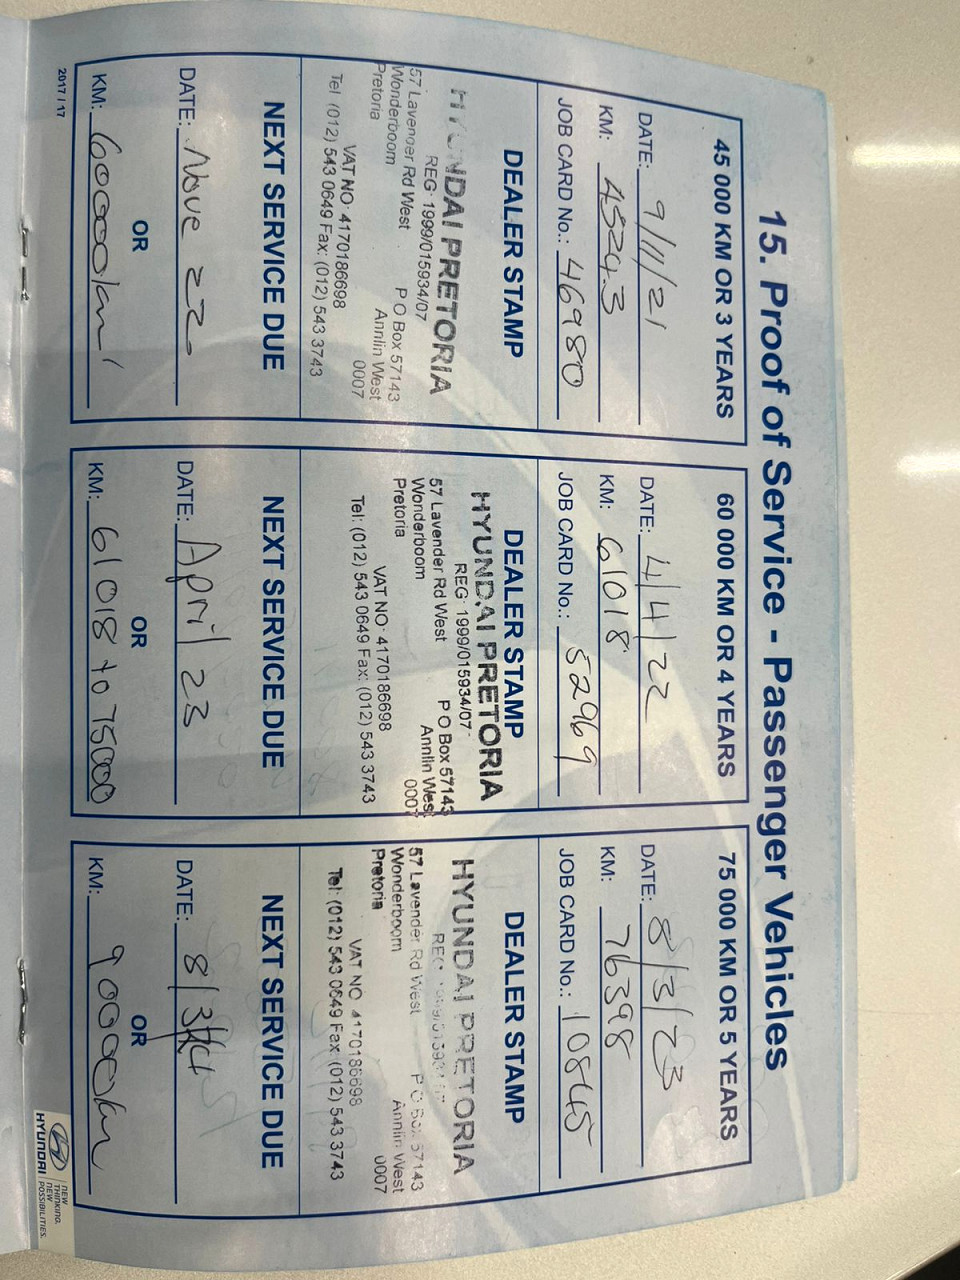 15. Proof of Service - Passenger Vehicles
45 000 KM OR 3 YEARS
DATE: 9/11/21
KM: 45243
JOB CARD No.: 46980
DEALER STAMP
HYUNDAI PRETORIA
REG: 1999/015934/07
57 Lavender Rd West P O Box 57143
Wonderboom Annlin West
Pretoria 0007
VAT NO: 4170186698
Tel: (012) 543 0649 Fax: (012) 543 3743
NEXT SERVICE DUE
DATE: Nove 22
OR
KM: 60000km
60 000 KM OR 4 YEARS
DATE: 4/4/22
KM: 61018
JOB CARD No.: 52969
DEALER STAMP
HYUNDAI PRETORIA
REG: 1999/015934/07
57 Lavender Rd West P O Box 57143
Wonderboom Annlin West
Pretoria 0007
VAT NO: 4170186698
Tel: (012) 543 0649 Fax: (012) 543 3743
NEXT SERVICE DUE
DATE: April 23
OR
KM: 61018 to 75000
75 000 KM OR 5 YEARS
DATE: 8/3/23
KM: 76398
JOB CARD No.: 10845
DEALER STAMP
HYUNDAI PRETORIA
57 Lavender Rd West P O Box 57143
Wonderboom Annlin West
Pretoria 0007
VAT NO 4170186698
Tel: (012) 543 0649 Fax: (012) 543 3743
NEXT SERVICE DUE
DATE: 8/3/24
OR
KM: 90000km
2017 / 17
HYUNDAI
NEW THINKING.
NEW POSSIBILITIES.